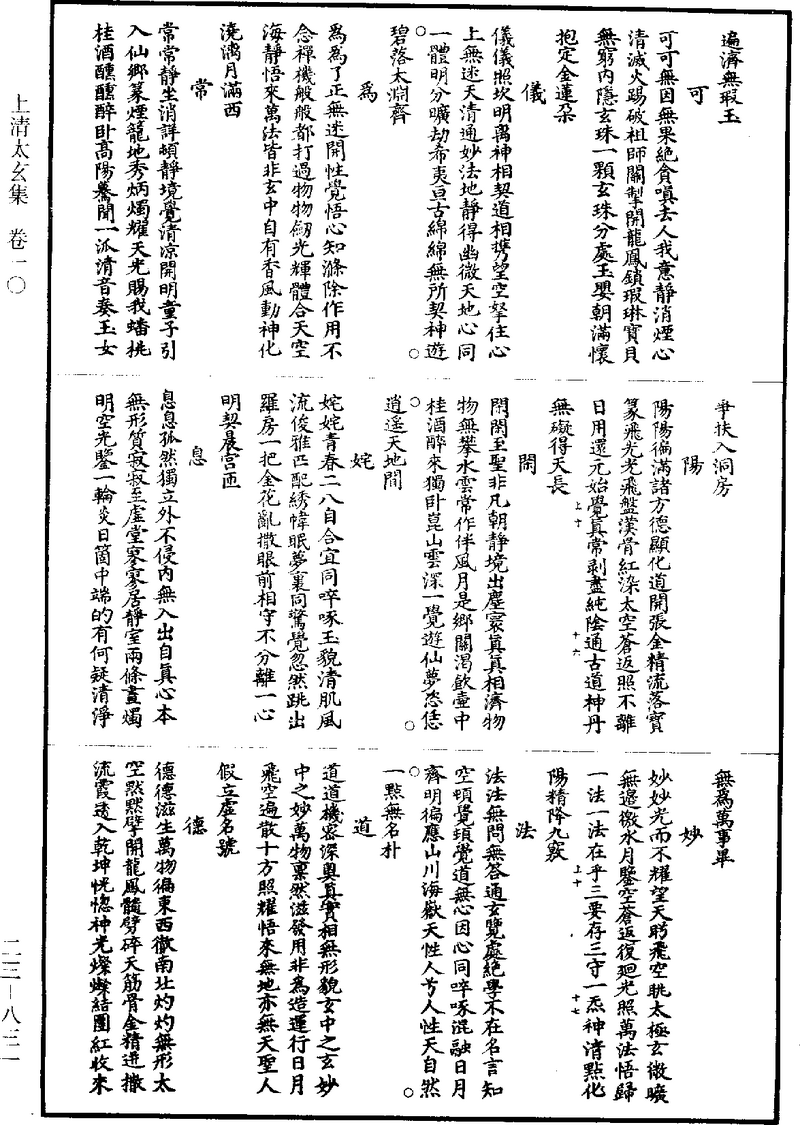 遍濟無瑕玉
可
可可無因無果絕貪嗔丢人我意靜消煙心
清滅火踢破祖師關掣開龍鳳鎖瑕琳寶貝
無窮内隱玄珠一顆玄珠分處玉嬰朝滿懷
抱定金蓮朶
儀
儀儀照坎明离神相契道相携望空拏住心
上無迷天清通妙法地靜得幽微天地心同
一體明分曠劫希夷亘古綿綿無所契神遊
碧落太淵齊
爲
爲爲了正無迷開性覺悟心知滌除作用不
念禪機般般都打過物物劒光輝體合天空
海靜悟來萬法皆非玄中自有香風動神化
澆漓月滿西
常
常常靜坐消詳頓靜境覺清凉開明童子引
入仙鄉篆煙籠地秀炳燭耀天光賜我蟠桃
桂酒醺醺醉卧高陽驀聞一派清音奏玉女
爭扶入洞房
陽
陽陽徧滿諸方德顯化道開張金精流落寳
篆飛光光飛盤漢骨紅染太空蒼返照不離
日用還元始覺真常剥盡純陰通古道神丹
無礙得天長
閑
閑閑至聖非凡朝靜境出塵寰真真相濟物
物無攀水雲常作伴風月是鄉關渴飲壺中
桂酒醉來獨卧崑山雲深一覺遊仙夢恣恁
逍遥天地間
姹
姹姹青春二八自合宜同啐啄玉貌清肌風
流俊雅匹配綉幃眠夢裏同驚覺忽然跳出
羅房一把金花亂撒眼前相守不分離一心
明契晨宫匝
息
息息孤然獨立外不侵内無入出自真心本
無形質寂寂至虚堂寥寥居靜室兩條畫燭
明空光鑒一輪炎日箇中端的有何疑清淨
無爲萬事畢
妙
妙妙光而不耀望天昣飛空眺太極玄微曠
無邊徼水月鑒空蒼返復廻光照萬法悟歸
一法一法在乎三要存三守一炁神清點化
陽精降九竅
法
法法無問無答通玄覽處絕學不在名言知
空頓覺頊覺道無心因心同啐啄混融日月
齊明徧應山川海嶽天性人兮人性天自然
一點無名朴
道
道道機密深奥真實相無形貌玄中之玄妙
中之妙萬物禀然滋發用非爲造運行日月
飛空遍散十方照耀悟來無地亦無天聖人
假立虚名號
德
德德滋生萬物徧東西徹南北灼灼無形太
空㸃㸃擘開龍鳳髓劈碎天筋骨金精迸撒
流霞透入乾坤恍惚神光燦燦結團紅收來
上清太玄集　卷一〇
二三—八三一
上十
十六
上十
十七